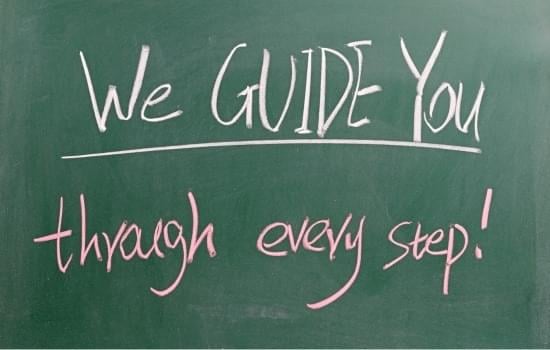 We GUIDE You
through every step!